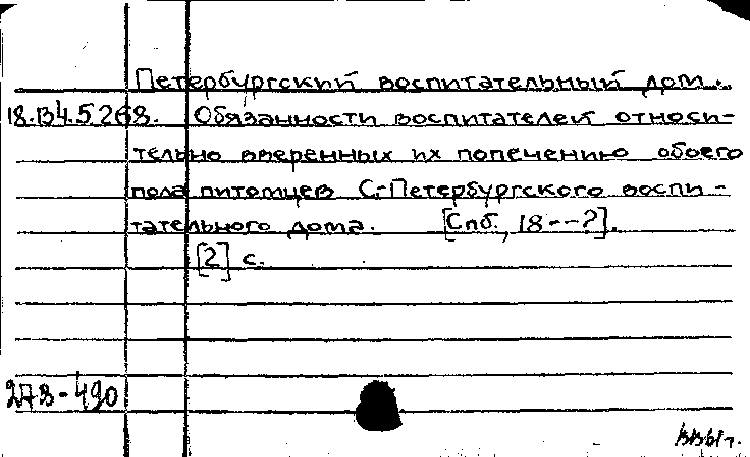 Петербургский воспитательный дом.
18.134.5.268. Обязанности воспитателей относи-
тельно вверенных их попечению обоего
пола питомцев С.-Петербургского воспи-
тательного дома. [Спб., 18--?].
[2] с.
278-490